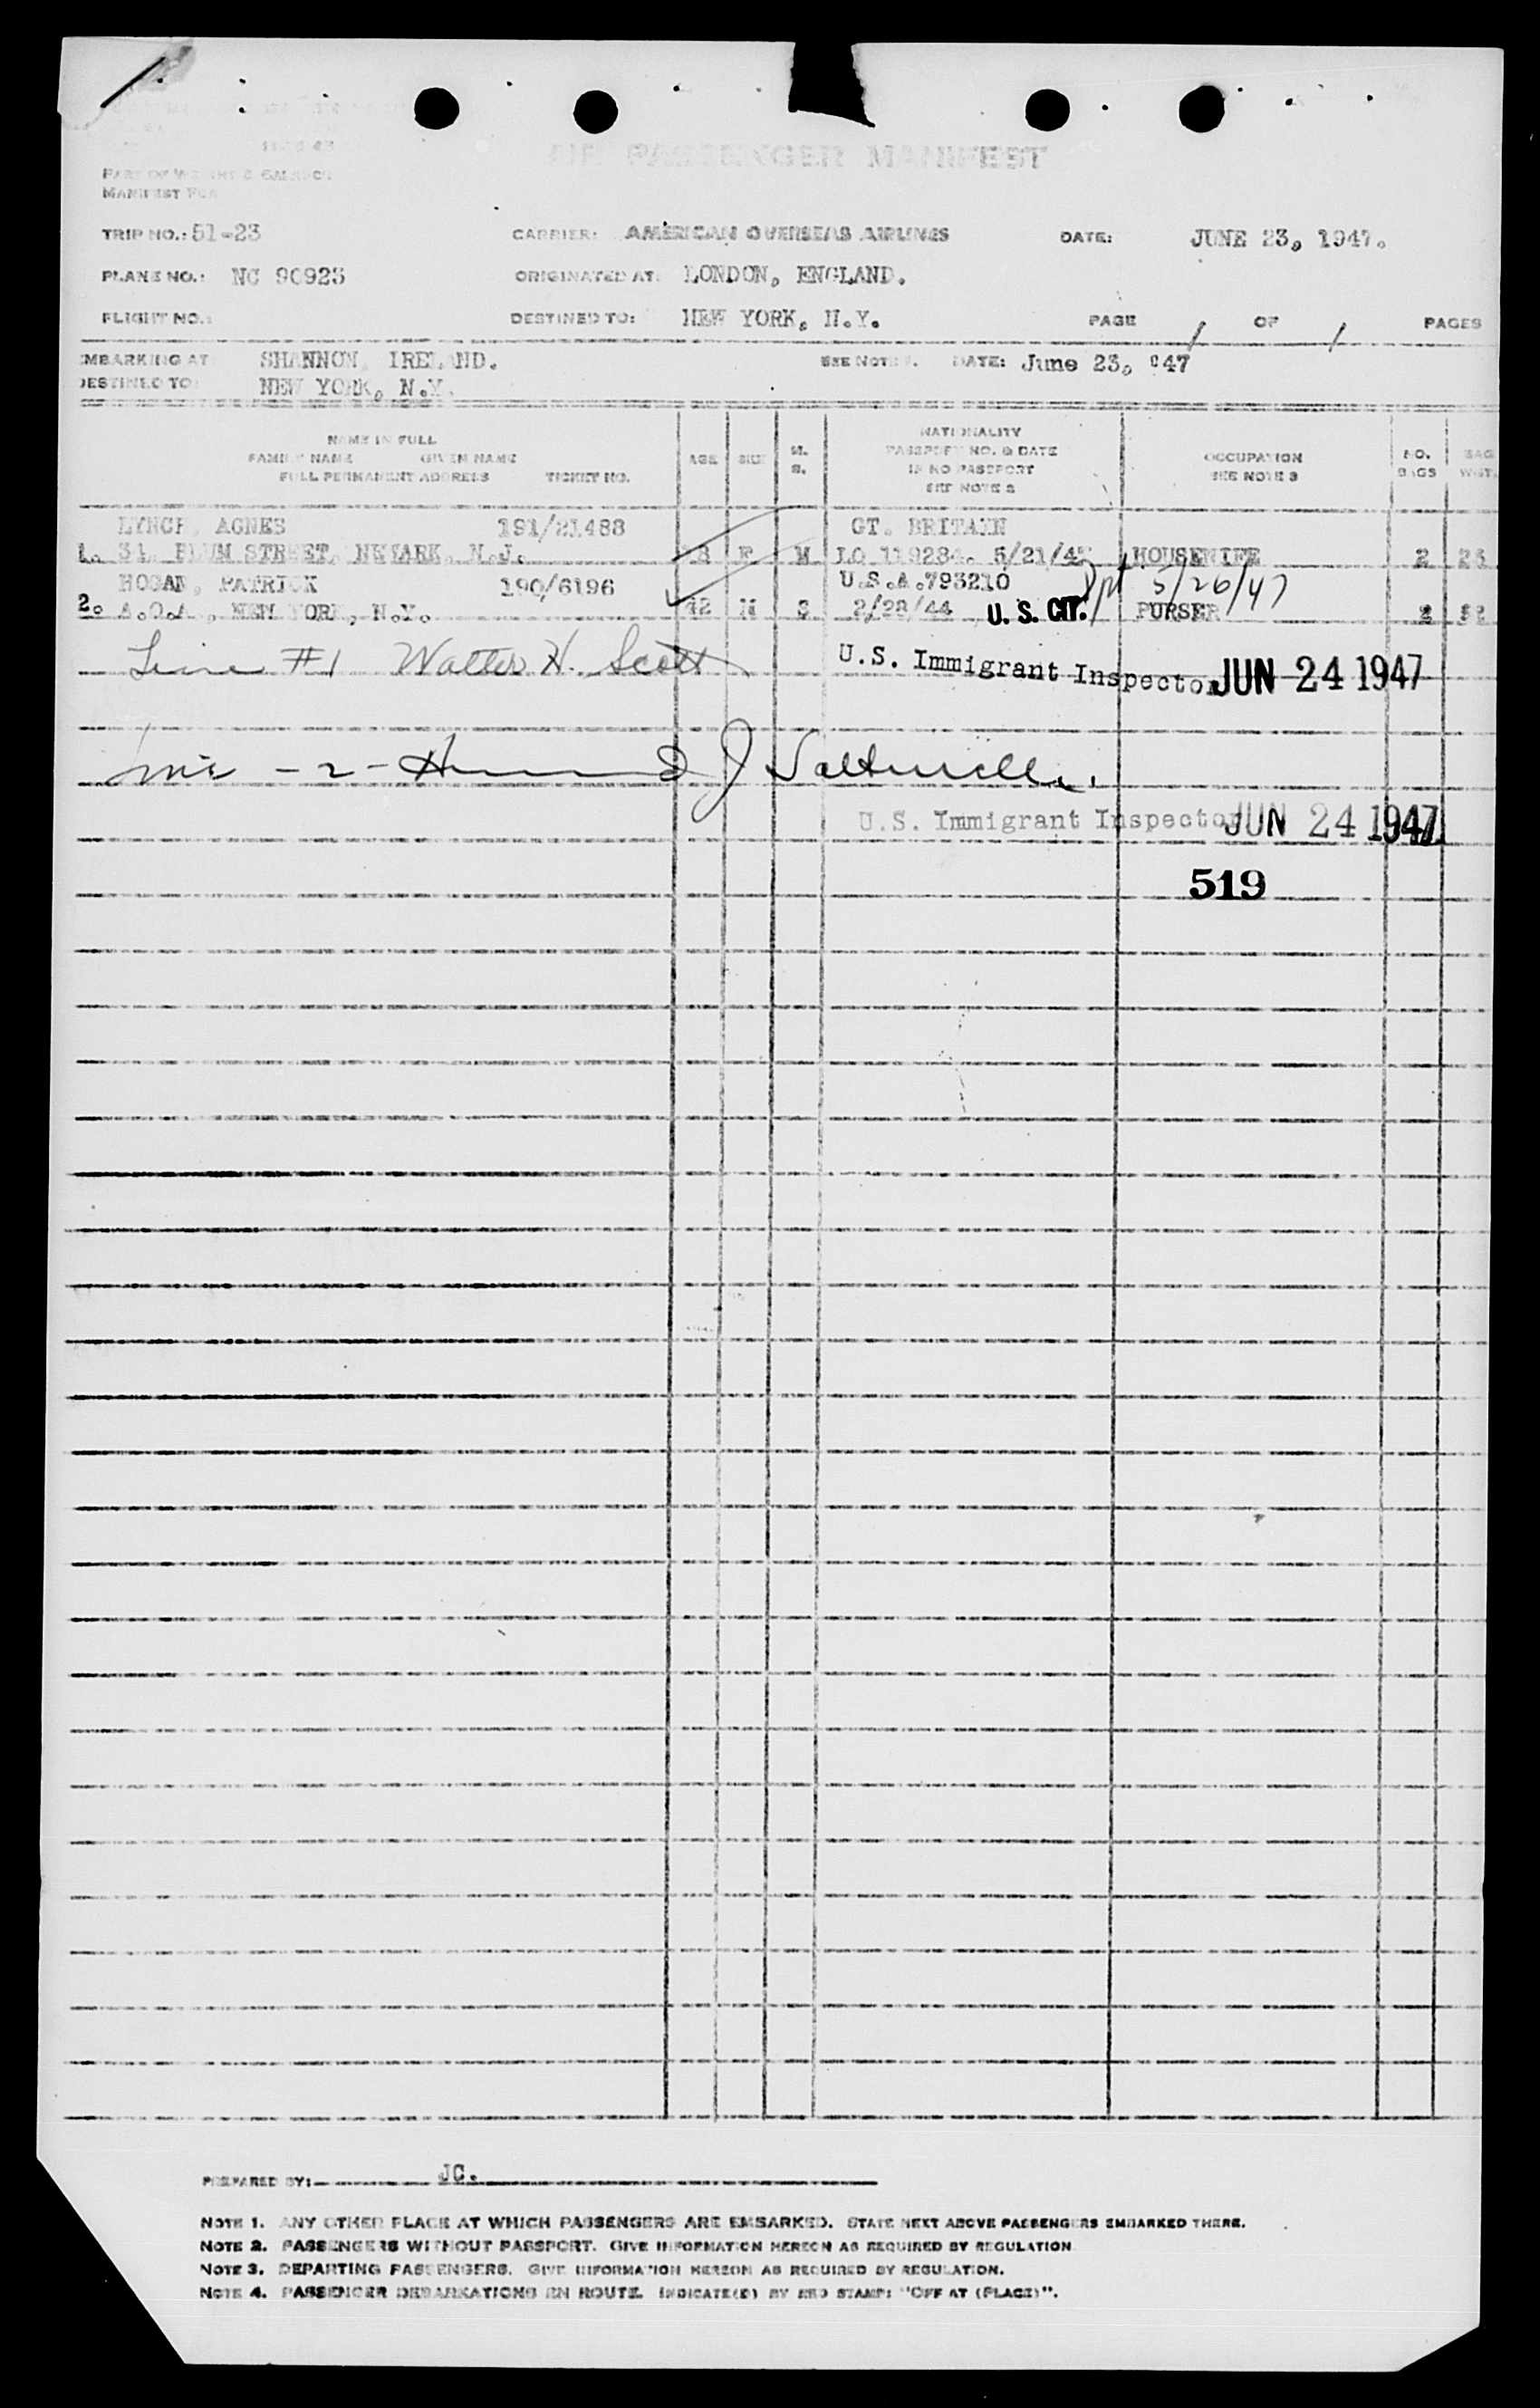 AIR PASSENGER MANIFEST
MANIFEST FOR
TRIP NO.: 51-23 CARRIER: AMERICAN OVERSEAS AIRLINES DATE: JUNE 23, 1947.
PLANE NO.: NC 90923 ORIGINATED AT: LONDON, ENGLAND.
FLIGHT NO.: DESTINED TO: NEW YORK, N.Y. PAGE 1 OF 1 PAGES
EMBARKING AT SHANNON, IRELAND. SEE NOTE DATE: June 23, 947
DESTINED TO: NEW YORK, N.Y.
NAME IN FULL
FAMILY NAME GIVEN NAME
FULL PERMANENT ADDRESS TICKET NO.
AGE SEX M. S.
NATIONALITY
PASSPORT NO. & DATE
IF NO PASSPORT
SEE NOTE 2
OCCUPATION
SEE NOTE 3
NO. BAGS
BAG WGT.
LYNCH, AGNES 191/21488 GT. BRITAIN
1. 31, STREET, NEWARK, N.J. F M LO 119284. 5/21/4 HOUSEWIFE 2
HOGAN, PATRICK 190/6196 U.S.A.793210 5/26/47
2. A.O.A., NEW YORK, N.Y. 42 M S 2/28/44 U.S. CIT. PURSER 2
Line #1 Walter H. Scott U.S. Immigrant Inspector JUN 24 1947
line -2-
U.S. Immigrant Inspector JUN 24 1947
519
PREPARED BY: JC.
NOTE 1. ANY OTHER PLACE AT WHICH PASSENGERS ARE EMBARKED. STATE NEXT ABOVE PASSENGERS EMBARKED THERE.
NOTE 2. PASSENGERS WITHOUT PASSPORT. GIVE INFORMATION HEREON AS REQUIRED BY REGULATION
NOTE 3. DEPARTING PASSENGERS. GIVE INFORMATION HEREON AS REQUIRED BY REGULATION.
NOTE 4. PASSENGER DEBARKATIONS EN ROUTE. INDICATE(D) BY RED STAMP: "OFF AT (PLACE)".